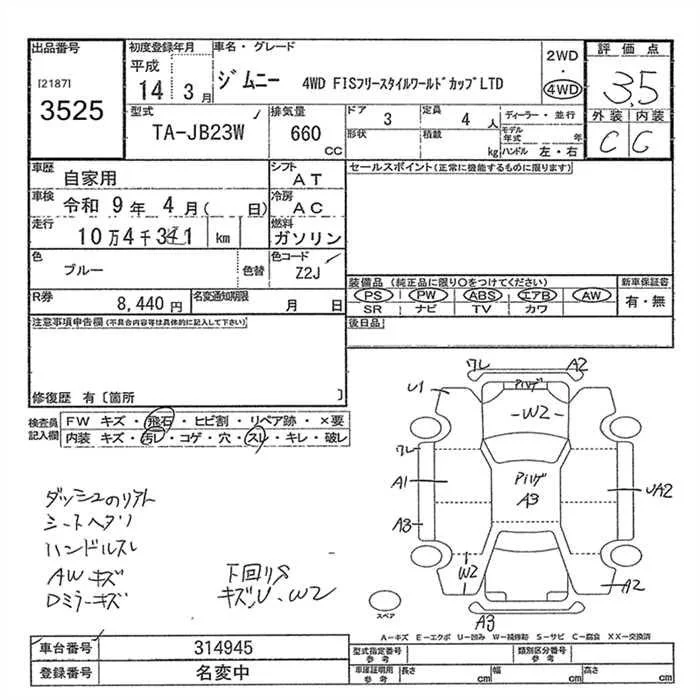 出品番号
[2187]
3525
初度登録年月
平成
14 3月
車名・グレード
ジムニー 4WD FISフリースタイルワールドカップLTD
2WD
・
4WD
評価点
3.5
外装 内装
C C
型式
TA-JB23W
排気量
660
CC
ドア
3
形状
定員
4 人
積載
kg
ディーラー・並行
モデル年式 年
ハンドル 左・右
車歴
自家用
シフト
AT
車検
令和 9年 4月( 日)
冷房
AC
走行
km
燃料
ガソリン
色
ブルー
色替
色コード
Z2J
R券
8,440円
名変通知期限
月 日
セールスポイント(正常に機能するものに限ります)
装備品 (純正品に限り○をつけてください)
PS PW ABS エアB AW
SR ナビ TV カワ
新車保証書
有・無
後日品
注意事項申告欄(不具合内容等は具体的に記入して下さい)
修復歴 有〔箇所 〕
検査員
記入欄
FW キズ・飛石・ヒビ割・リペア跡・×要
内装 キズ・汚レ・コゲ・穴・スレ・キレ・破レ
ワレ A2
U1
W2
ワレ
A1
A3
A3
UA2
W2
A2
A3
ハンドルスレ
AWキズ
Dミラーキズ
スペア
A-キズ E-エクボ U-凹み W-補修跡 S-サビ C-腐食 XX-交換済
車台番号
314945
登録番号
名変中
型式指定番号
参考
類別区分番号
参考
車庫証明用
参考
長さ cm
幅 cm
高さ cm